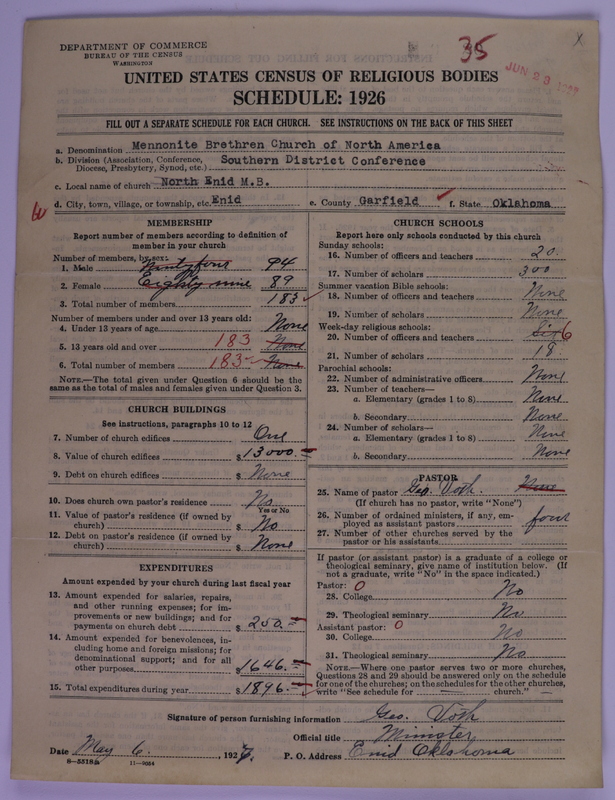 35
JUN 23
X
DEPARTMENT OF COMMERCE
BUREAU OF THE CENSUS
WASHINGTON
UNITED STATES CENSUS OF RELIGIOUS BODIES
SCHEDULE: 1926
FILL OUT A SEPARATE SCHEDULE FOR EACH CHURCH. SEE INSTRUCTIONS ON THE BACK OF THIS SHEET
a. Denomination Mennonite Brethren Church of North America
b. Division (Association, Conference, Diocese, Presbytery, Synod, etc.) Southern District Conference
c. Local name of church North Enid M.B.
d. City, town, village, or township, etc. Enid e. County Garfield f. State Oklahoma
MEMBERSHIP
Report number of members according to definition of
member in your church
Number of members, by sex:
1. Male Ninty four 94
2. Female Eighty nine 89
3. Total number of members 183
Number of members under and over 13 years old:
4. Under 13 years of age None
5. 13 years old and over 183 None
6. Total number of members 183 None
NOTE.—The total given under Question 6 should be the
same as the total of males and females given under Question 3.
CHURCH BUILDINGS
See instructions, paragraphs 10 to 12
7. Number of church edifices One
8. Value of church edifices $ 13000.=
9. Debt on church edifices $ None
10. Does church own pastor's residence No
Yes or No
11. Value of pastor's residence (if owned by
church) $ No
12. Debt on pastor's residence (if owned by
church) $ None
EXPENDITURES
Amount expended by your church during last fiscal year
13. Amount expended for salaries, repairs,
and other running expenses; for im-
provements or new buildings; and for
payments on church debt $ 250.=
14. Amount expended for benevolences, in-
cluding home and foreign missions; for
denominational support; and for all
other purposes $ 1646.=
15. Total expenditures during year $ 1896.=
CHURCH SCHOOLS
Report here only schools conducted by this church
Sunday schools:
16. Number of officers and teachers 20
17. Number of scholars 300
Summer vacation Bible schools:
18. Number of officers and teachers None
19. Number of scholars None
Week-day religious schools:
20. Number of officers and teachers Six 6
21. Number of scholars 18
Parochial schools:
22. Number of administrative officers None
23. Number of teachers—
a. Elementary (grades 1 to 8) None
b. Secondary None
24. Number of scholars—
a. Elementary (grades 1 to 8) None
b. Secondary None
PASTOR
25. Name of pastor Geo. Voth. None
(If church has no pastor, write "None")
26. Number of ordained ministers, if any, em-
ployed as assistant pastors four
27. Number of other churches served by the
pastor or his assistants
If pastor (or assistant pastor) is a graduate of a college or
theological seminary, give name of institution below. (If
not a graduate, write "No" in the space indicated.)
Pastor: 0
28. College No
29. Theological seminary No
Assistant pastor: 0
30. College No
31. Theological seminary No
NOTE.—Where one pastor serves two or more churches,
Questions 28 and 29 should be answered only on the schedule
for one of the churches; on the schedules for the other churches,
write "See schedule for church."
Signature of person furnishing information Geo. Voth
Official title Minister
Date May 6. , 1927. P. O. Address Enid Oklahoma
8-5518a 11-9054